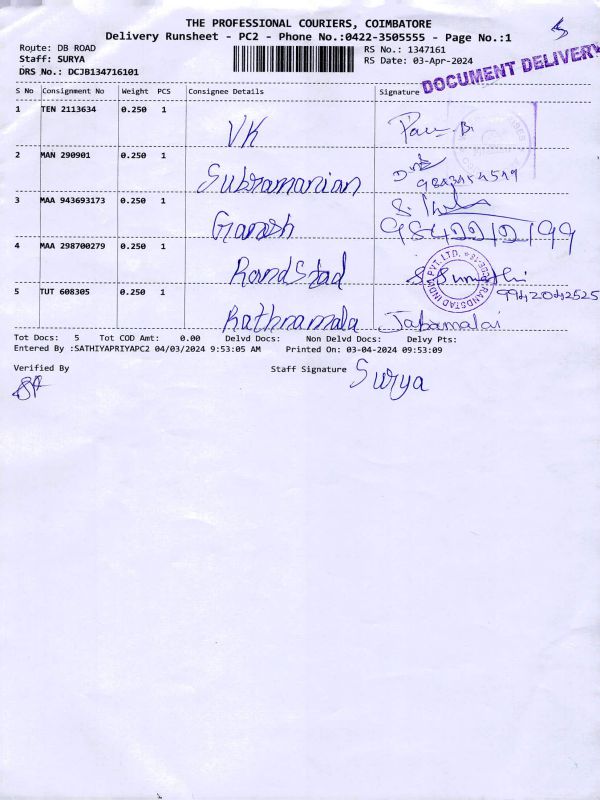 THE PROFESSIONAL COURIERS, COIMBATORE
5
Delivery Runsheet - PC2 - Phone No.:0422-3505555 - Page No.:1
Route: DB ROAD RS No.: 1347161
Staff: SURYA RS Date: 03-Apr-2024
DRS No.: DCJB134716101
DOCUMENT DELIVERY
S No Consignment No Weight PCS Consignee Details Signature
1 TEN 2113634 0.250 1 VK
2 MAN 290901 0.250 1 Subramanian
3 MAA 943693173 0.250 1 Ganesh
4 MAA 298700279 0.250 1 Randstad S. Sumathi
RANDSTAD INDIA PVT. LTD.
9942042525
5 TUT 608305 0.250 1 Rathnamala Jabamalai
Tot Docs: 5 Tot COD Amt: 0.00 Delvd Docs: Non Delvd Docs: Delvy Pts:
Entered By :SATHIYAPRIYAPC2 04/03/2024 9:53:05 AM Printed On: 03-04-2024 09:53:09
Verified By Staff Signature Surya